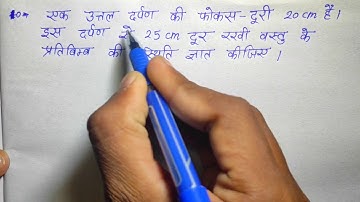 एक उत्तल दर्पण की फोकस-दूरी 20 cm है।
इस दर्पण से 25 cm दूर रखी वस्तु के
प्रतिबिम्ब की कीजिए ज्ञात ।